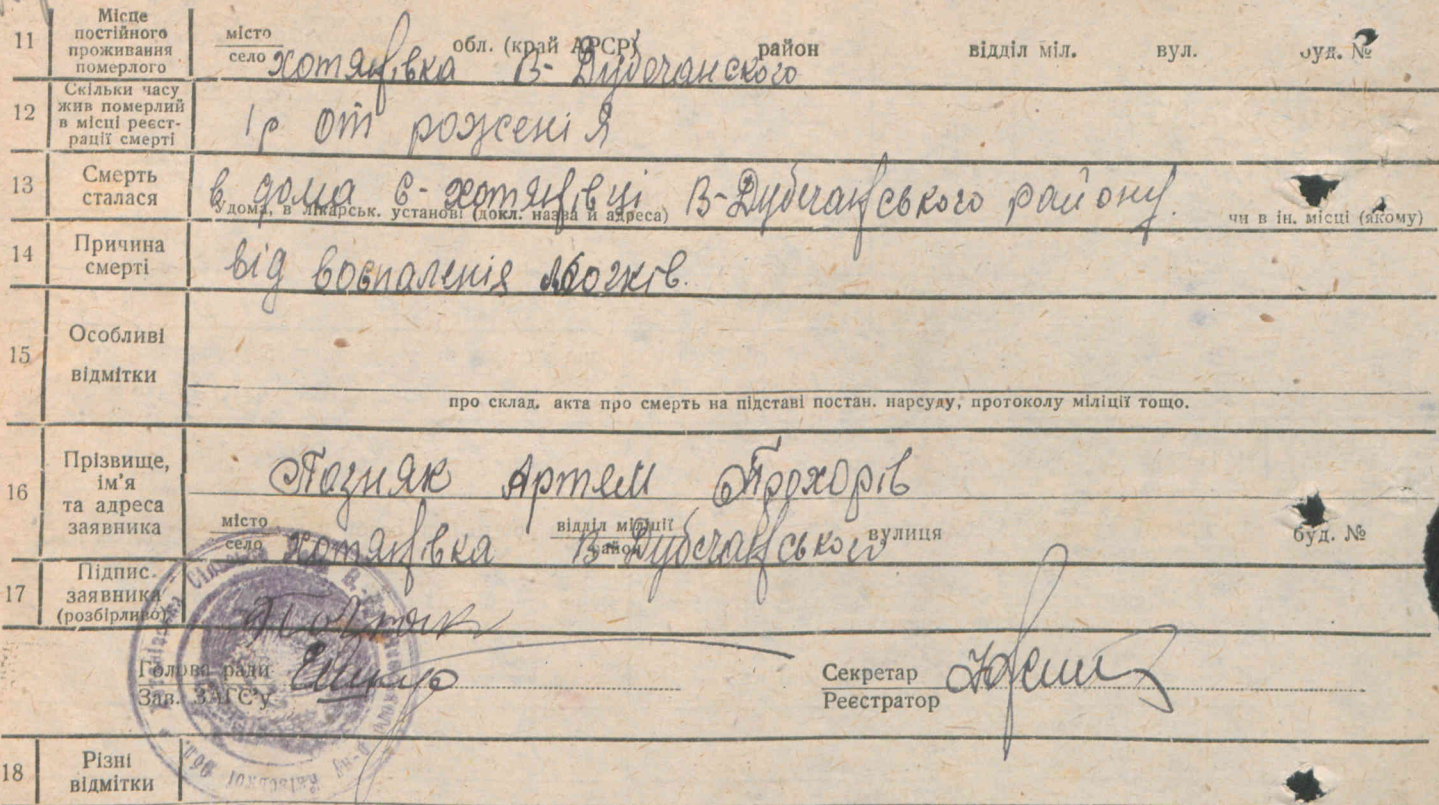 11 Місце постійного проживання померлого
місто село обл. (край АРСР) район відділ міл. вул. буд. №
хотянівка В-Дубечанского
12 Скільки часу жив померлий в місці реєстрації смерті
1 р от рожсеніЯ
13 Смерть сталася
в дома с-хотянівці В-Дубечанського району.
Удома, в лікарськ. установі (докл. назва й адреса) чи в ін. місці (якому)
14 Причина смерті
від воспаленія
15 Особливі відмітки
про склад. акта про смерть на підставі постан. нарсуду, протоколу міліції тощо.
16 Прізвище, ім'я та адреса заявника
Позняк Артем Прохорів
місто село відділ міліції район вулиця буд. №
Хотянівка В-Дубечанського
17 Підпис заявника (розбірливо)
Голова ради
Зав. ЗАГС'у
Секретар
Реєстратор
18 Різні відмітки